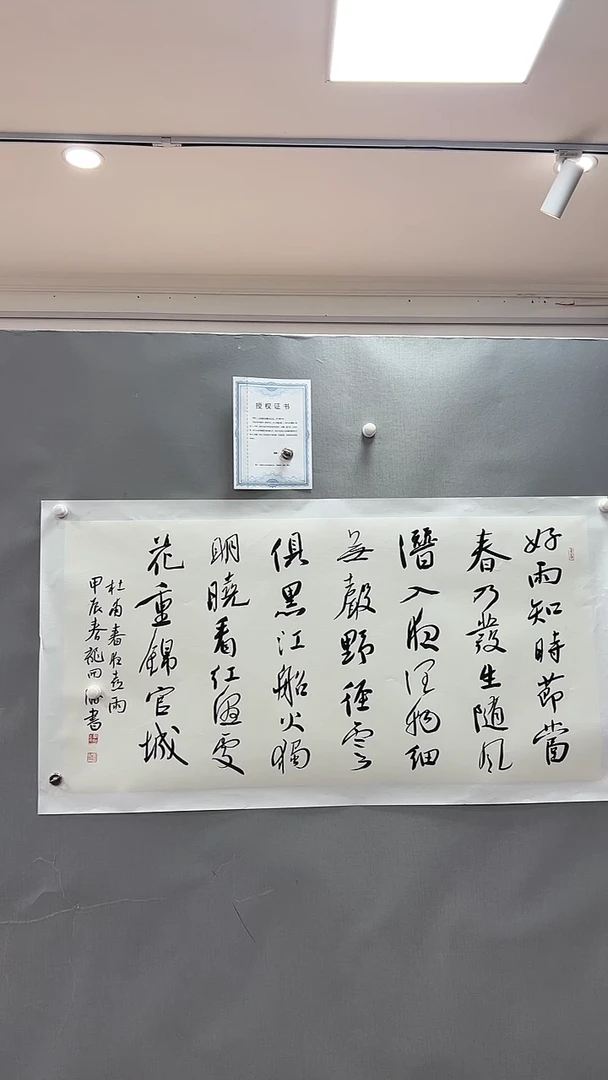 授权证书
好雨知時節當
春乃發生随風
潛入夜潤物細
無聲野徑雲
俱黑江船火獨
明曉看红濕處
花重錦官城
杜甫春夜喜雨
甲辰春龍書